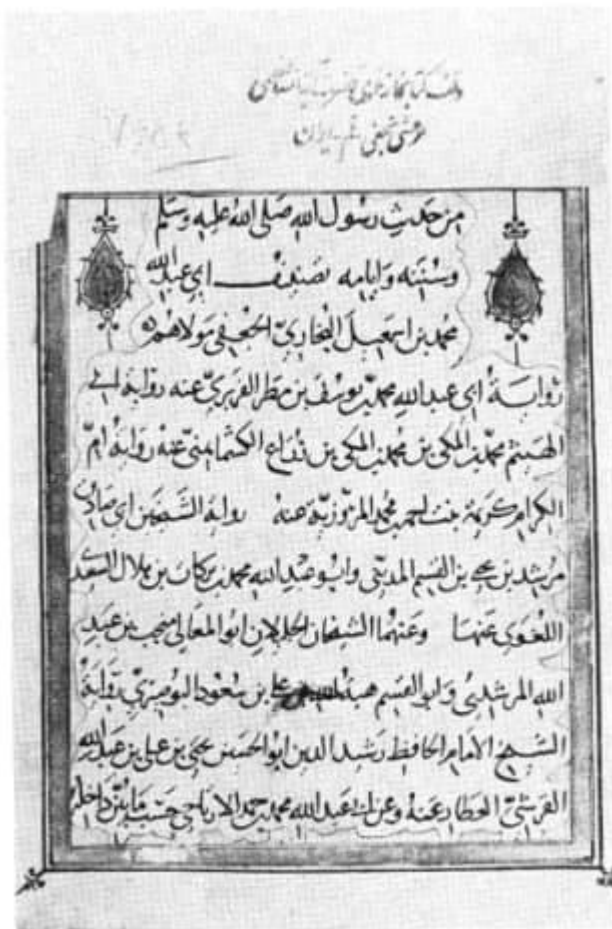 وقف كتابخانه عمومى
مرعشى نجفى قم ايران
من حديث رسول الله صلى الله عليه وسلم
وسننه وايامه تصنيف ابي عبد الله
محمد بن اسمعيل البخاري الجعفي مولاهم
رواية ابي عبد الله محمد بن يوسف بن مطر الفربري عنه رواية ابي
الهيثم محمد بن المكي بن محمد بن المكي بن زراع الكشميهني عنه رواية ام
الكرام كريمة بنت احمد بن محمد المروزية عنه رواية الشيخين ابي صادق
مرشد بن يحيى بن القسم المديني وابو عبد الله محمد بن بركات بن هلال السعيدي
اللغوي عنها وعنهما الشيخان الجليلان ابو المعالي منجب بن عبد
الله المرشدي وابو القسم هبة الله بن علي بن سعود البوصيري رواية
الشيخ الامام الحافظ رشيد الدين ابو الحسين يحيى بن علي بن عبد الله
القرشي العطار عنه وعن ابي عبد الله محمد بن حمد الارتاحي حسب